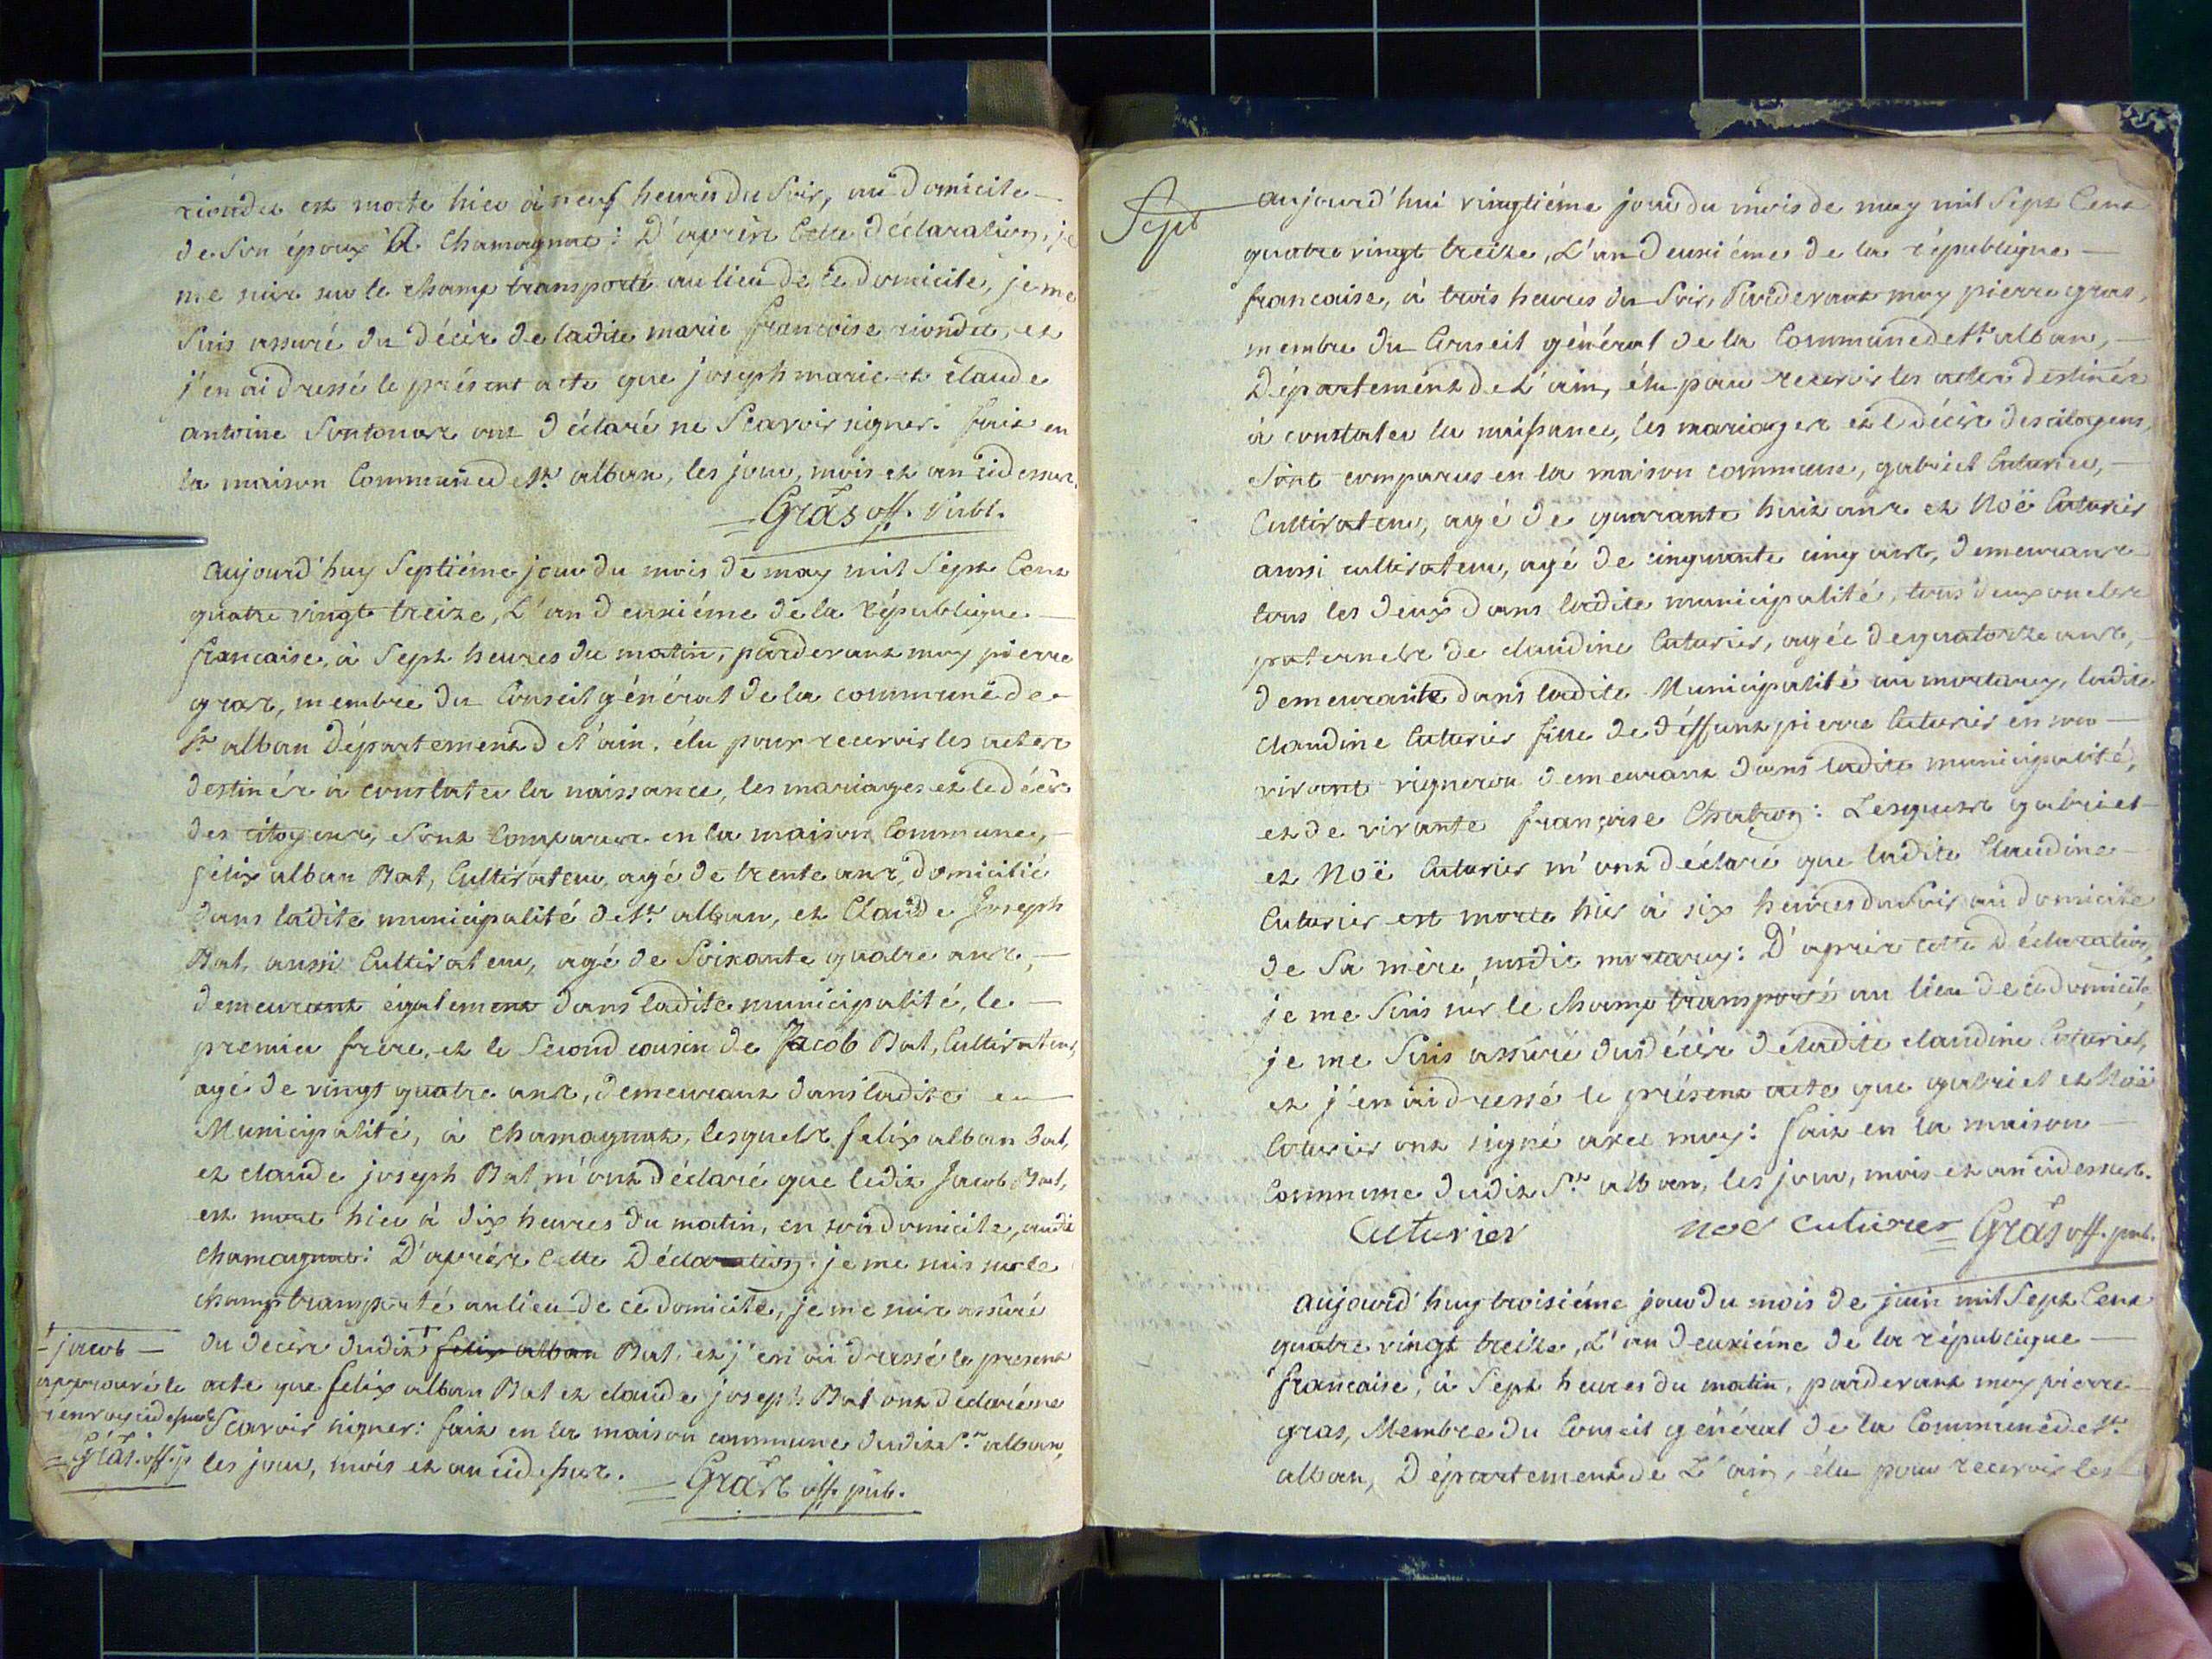 riondet est morte hier à neuf heures du soir, au domicile
de son époux à Chamagnat: D'après Cette déclaration, je
me suis sur le champ transporté au lieu de ce domicile, je me
suis assuré du décès de ladite marie francoise riondet, et
j'en ai dressé le présent acte que joseph marie et claude
antoine ont déclaré ne Scavoir signer. fait en
la maison Commune de St alban, les jour, mois et an cidessus.
Gras off. Publ.
aujourd'huy Septiéme jour du mois de may mil Sept Cent
quatre vingt treize, L'an deuxiéme de la république
francaise, à Sept heures du matin, pardevant moy pierre
gras, membre du Conseil général de la commune de
St alban Département de l'ain, élu pour recevoir les actes
destinés à constater la naissance, les mariages et le décès
des citoyens, sont Comparus en la maison Commune,
félix alban Bat, Cultivateur, agé de trente ans, domicilié
dans ladite municipalité de St alban, et Claude Joseph
Bat, aussi Cultivateur, agé de Soixante quatre ans,
demeurant également dans ladite municipalité, le
premier frère, et le Second cousin de Jacob Bat, Cultivateur,
agé de vingt quatre ans, demeurant dans ladite
Municipalité, à chamagnat, lesquels felix alban Bat,
et claude joseph Bat m'ont déclaré que ledit Jacob Bat,
est mort hier à dix heures du matin, en son domicile, audit
chamagnat: D'après Cette Déclaration: je me suis sur le
champ transporté au lieu de ce domicile, je me suis assûré
du décès dudit + felix alban Bat, et j'en ai dressé le present
acte que felix alban Bat et claude joseph Bat ont déclaré ne
Scavoir signer: fait en la maison commune dudit St alban,
les jour, mois et an cidessus.
Gras off. pub.
+ jacob
approuvé le
renvoy cidessus
Gras. off. p
Sept
aujourd'hui vingtiéme jour du mois de may mil Sept Cent
quatre vingt treize, L'an deuxiéme de la république
francaise, à trois heures du Soir, Pardevant moy pierre gras,
membre du Conseil général de la Commune de St alban,
Département de L'ain, élu pour recevoir les actes destinés
à constater la naissance, les mariages et le décès des citoyens,
Sont comparus en la maison commune, gabriel Cuturier,
Cultivateur, agé de quarante huit ans et Noë Cuturier
aussi cultivateur, agé de cinquante cinq ans, demeurants
tous les deux dans ladite municipalité, tous deux oncles
paternels de claudine Cuturier, agée de quatorze ans,
demeurante dans ladite Municipalité au mortarey, ladite
claudine Cuturier fille de déffunt pierre Cuturier en son
vivant vigneron demeurant dans ladite municipalité,
et de vivante françoise Chatron: Lesquels gabriel
et Noë Cuturier m'ont déclaré que ladite Claudine
Cuturier est morte hier à six heures du Soir au domicile
de Sa mère, audit mortarey: D'après cette Déclaration,
je me Suis sûr le champ transporté au lieu de ce domicile,
je me Suis assûré du décès de ladite claudine Cuturier,
et j'en ai dressé le présent acte que gabriel et Noë
Cuturier ont signé avec moy: fait en la maison
Commune dudit St alban, les jour, mois et an cidessus.
Cuturier noe cuturier Gras off. pub.
aujourd'huy troisiéme jour du mois de juin mil Sept Cent
quatre vingt treize, L'an deuxiéme de la république
francaise, à Sept heures du matin, pardevant moy pierre
gras, Membre du Conseil général de la Commune de St
alban, Département de L'ain, élu pour recevoir les